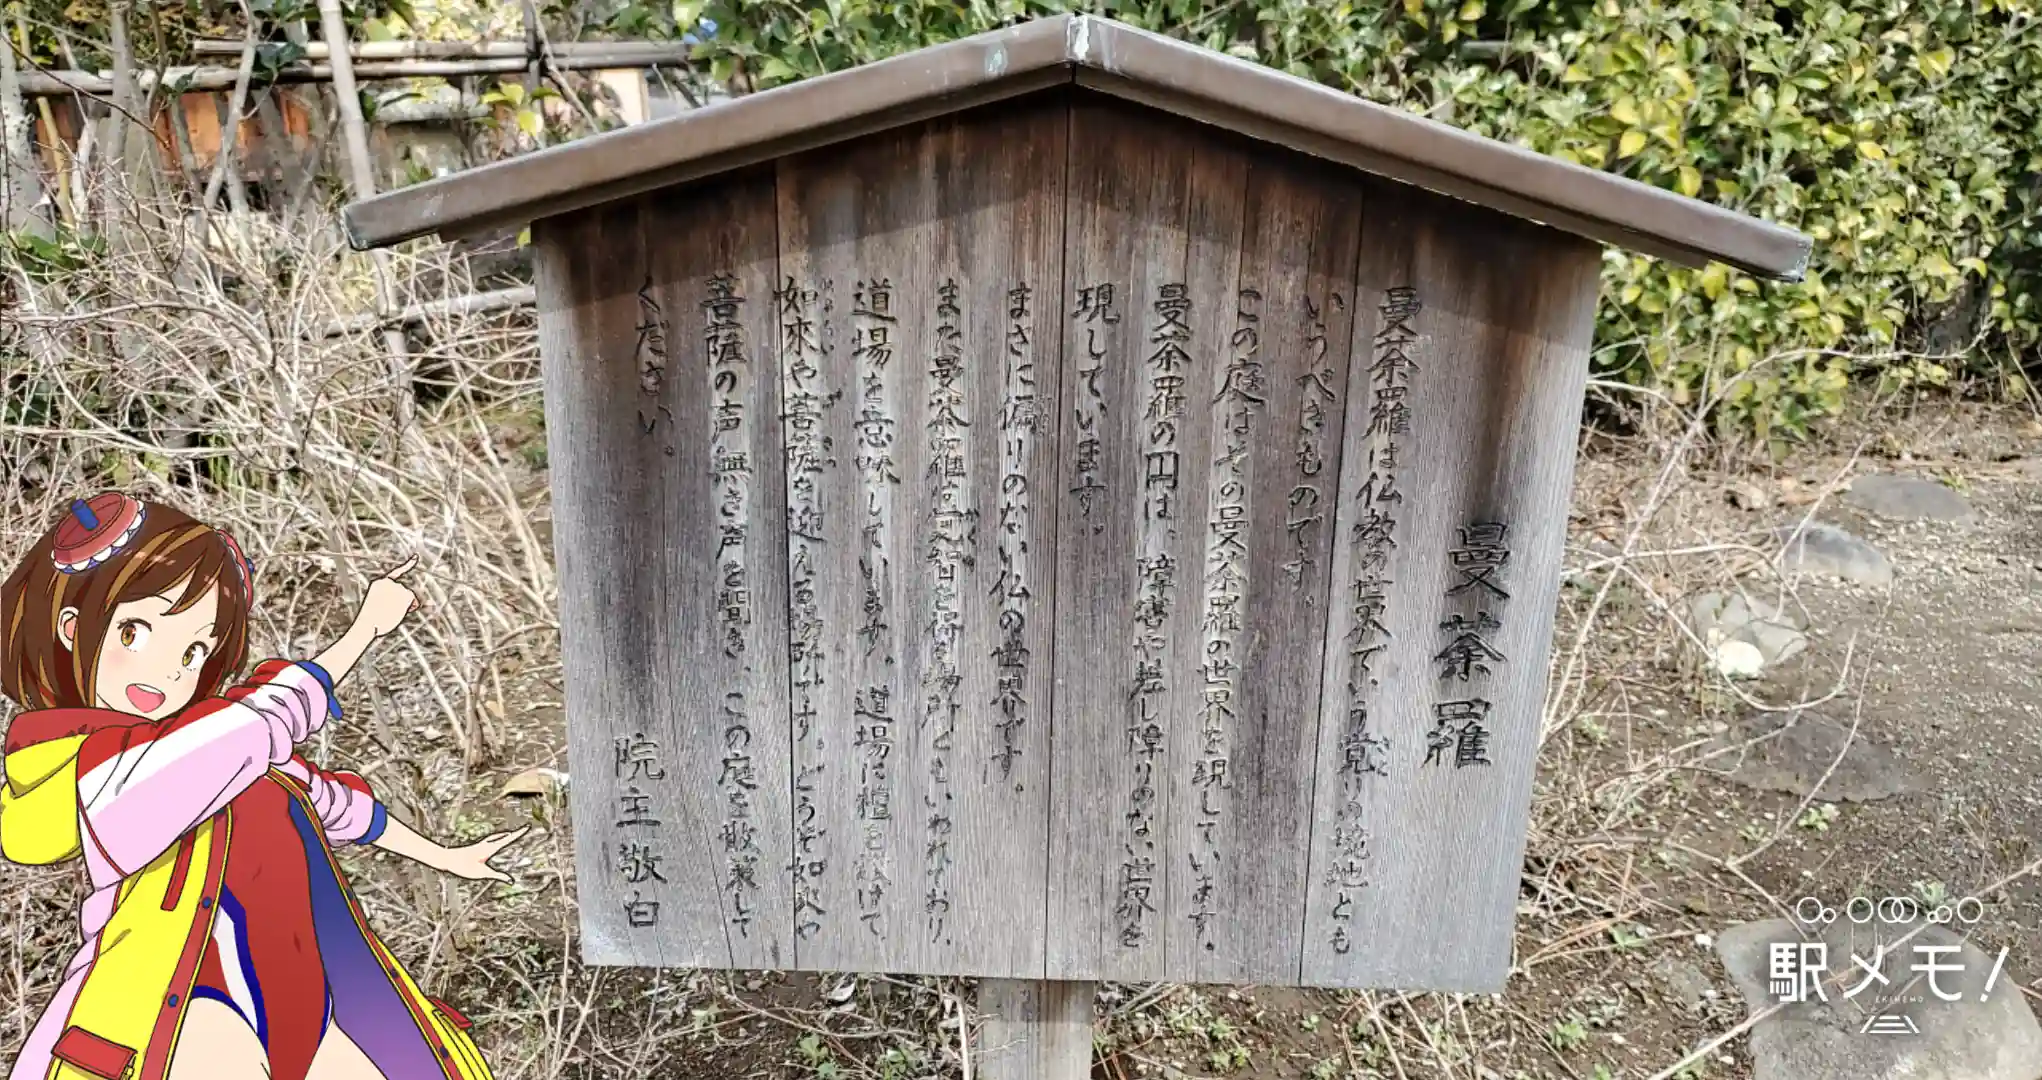 曼荼羅
曼荼羅は仏教の世界でいう覚りの境地とも
いうべきものです。
この庭はその曼荼羅の世界を現しています。
曼荼羅の円は、障害や差し障りのない世界を
現しています。
まさに偏りのない仏の世界です。
また曼荼羅は完智を得る場所ともいわれており、
道場を意味しています。道場に檀を設けて、
如来や菩薩を迎える場所です。どうぞ如来や
にょらい ぼさつ
菩薩の声無き声を聞き、この庭を散策して
ください。
院主敬白
駅メモ!
EKIMEMO